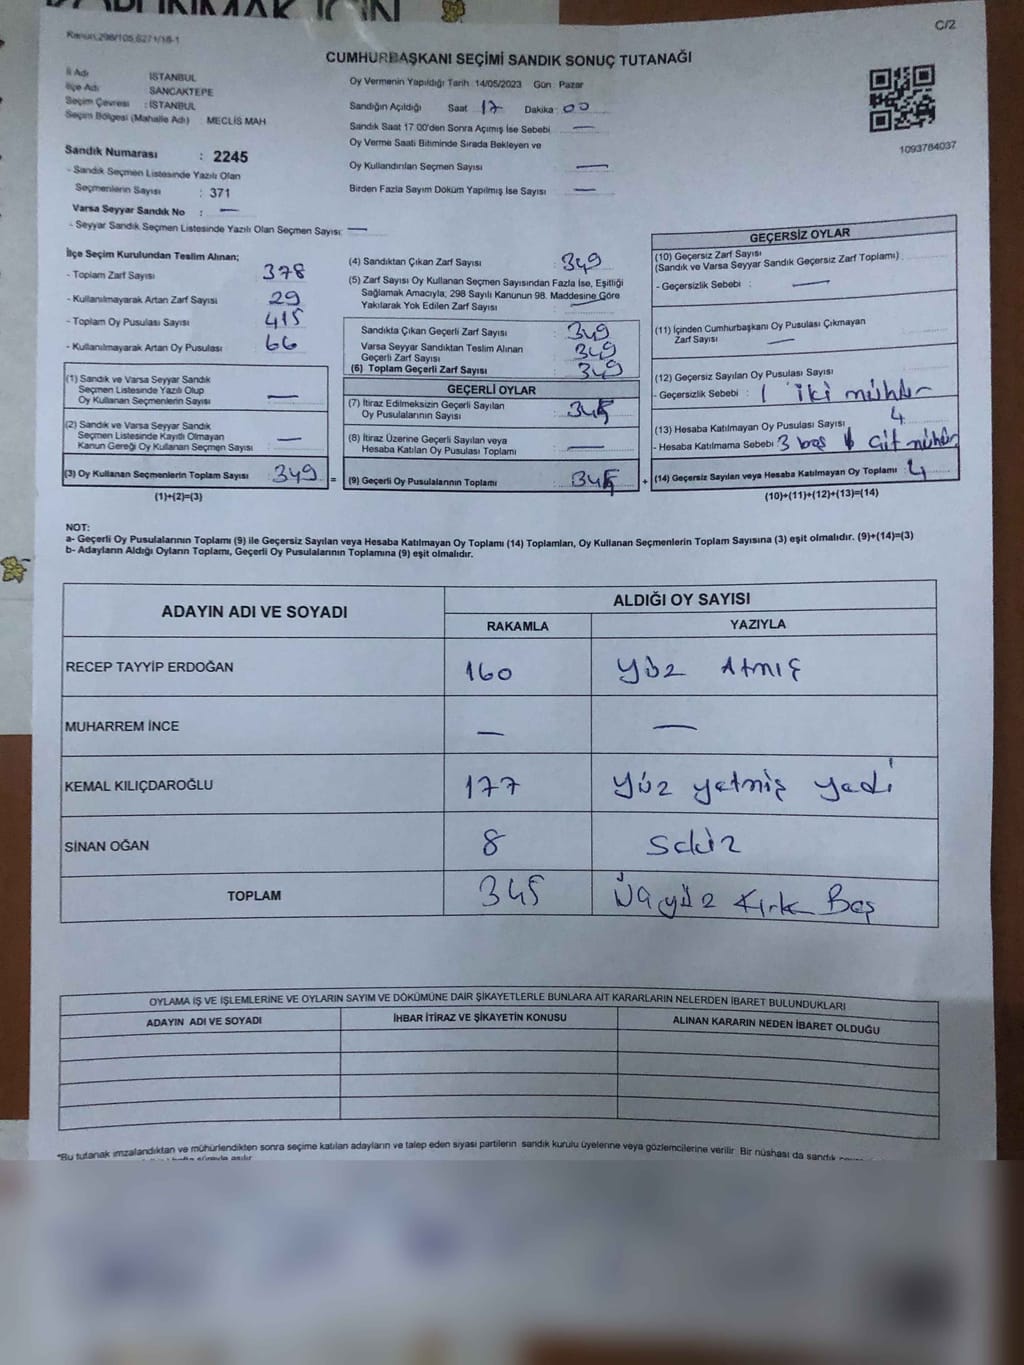 C/2
Kanun,298/105,6271/18-1
CUMHURBAŞKANI SEÇİMİ SANDIK SONUÇ TUTANAĞI
İl Adı : İSTANBUL
İlçe Adı : SANCAKTEPE
Seçim Çevresi : İSTANBUL
Seçim Bölgesi (Mahalle Adı) : MECLİS MAH
Sandık Numarası : 2245
- Sandık Seçmen Listesinde Yazılı Olan
Seçmenlerin Sayısı : 371
Varsa Seyyar Sandık No : —
- Seyyar Sandık Seçmen Listesinde Yazılı Olan Seçmen Sayısı: —
Oy Vermenin Yapıldığı Tarih 14/05/2023 Gün : Pazar
Sandığın Açıldığı Saat 17 Dakika : 00
Sandık Saat 17 00'den Sonra Açımış İse Sebebi —
Oy Verme Saati Bitiminde Sırada Bekleyen ve
Oy Kullandırılan Seçmen Sayısı —
Birden Fazla Sayım Döküm Yapılmış İse Sayısı —
1093784037
İlçe Seçim Kurulundan Teslim Alınan;
- Toplam Zarf Sayısı 378
- Kullanılmayarak Artan Zarf Sayısı 29
- Toplam Oy Pusulası Sayısı 415
- Kullanılmayarak Artan Oy Pusulası 66
(1) Sandık ve Varsa Seyyar Sandık
Seçmen Listesinde Yazılı Olup
Oy Kullanan Seçmenlerin Sayısı —
(2) Sandık ve Varsa Seyyar Sandık
Seçmen Listesinde Kayıtlı Olmayan
Kanun Gereği Oy Kullanan Seçmen Sayısı —
(3) Oy Kullanan Seçmenlerin Toplam Sayısı : 349 =
(1)+(2)=(3)
(4) Sandıktan Çıkan Zarf Sayısı : 349
(5) Zarf Sayısı Oy Kullanan Seçmen Sayısından Fazla İse, Eşitliği
Sağlamak Amacıyla; 298 Sayılı Kanunun 98. Maddesine Göre
Yakılarak Yok Edilen Zarf Sayısı : —
Sandıkta Çıkan Geçerli Zarf Sayısı : 349
Varsa Seyyar Sandıktan Teslim Alınan
Geçerli Zarf Sayısı : 349
(6) Toplam Geçerli Zarf Sayısı : 349
GEÇERLİ OYLAR
(7) İtiraz Edilmeksizin Geçerli Sayılan
Oy Pusulalarının Sayısı : 345
(8) İtiraz Üzerine Geçerli Sayılan veya
Hesaba Katılan Oy Pusulası Toplamı : —
(9) Geçerli Oy Pusulalarının Toplamı : 345 +
GEÇERSİZ OYLAR
(10) Geçersiz Zarf Sayısı
(Sandık ve Varsa Seyyar Sandık Geçersiz Zarf Toplamı)
- Geçersizlik Sebebi : —
(11) İçinden Cumhurbaşkanı Oy Pusulası Çıkmayan
Zarf Sayısı —
(12) Geçersiz Sayılan Oy Pusulası Sayısı
- Geçersizlik Sebebi : 1 iki mühür
(13) Hesaba Katılmayan Oy Pusulası Sayısı 4
- Hesaba Katılmama Sebebi : 3 boş çift mühür
(14) Geçersiz Sayılan veya Hesaba Katılmayan Oy Toplamı : 4
(10)+(11)+(12)+(13)=(14)
NOT:
a- Geçerli Oy Pusulalarının Toplamı (9) ile Geçersiz Sayılan veya Hesaba Katılmayan Oy Toplamı (14) Toplamları, Oy Kullanan Seçmenlerin Toplam Sayısına (3) eşit olmalıdır. (9)+(14)=(3)
b- Adayların Aldığı Oyların Toplamı, Geçerli Oy Pusulalarının Toplamına (9) eşit olmalıdır.
ADAYIN ADI VE SOYADI ALDIĞI OY SAYISI
RAKAMLA YAZIYLA
RECEP TAYYİP ERDOĞAN 160 yüz Atmış
MUHARREM İNCE — —
KEMAL KILIÇDAROĞLU 177 yüz yetmiş yedi
SİNAN OĞAN 8 Sekiz
TOPLAM 345 Üçyüz Kırk Beş
OYLAMA İŞ VE İŞLEMLERİNE VE OYLARIN SAYIM VE DÖKÜMÜNE DAİR ŞİKAYETLERLE BUNLARA AİT KARARLARIN NELERDEN İBARET BULUNDUKLARI
ADAYIN ADI VE SOYADI İHBAR İTİRAZ VE ŞİKAYETİN KONUSU ALINAN KARARIN NEDEN İBARET OLDUĞU
*Bu tutanak imzalandıktan ve mühürlendikten sonra seçime katılan adayların ve talep eden siyasi partilerin sandık kurulu üyelerine veya gözlemcilerine verilir. Bir nüshası da sandık